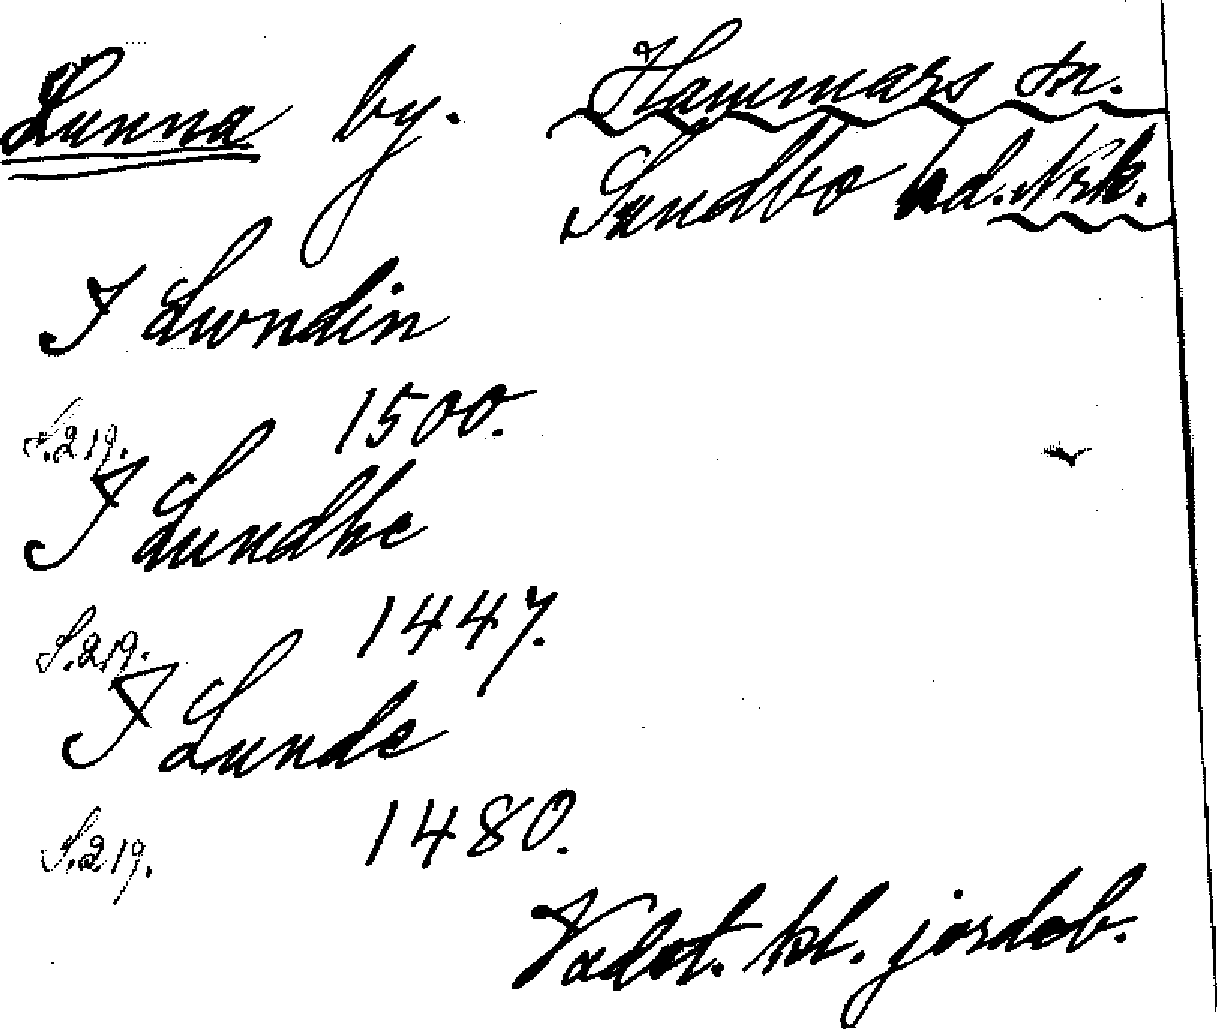 Lunna by.
Hammars sn.
Sundbo hd. Nrk.
J Lwndin
1500.
S. 219.
J Lundhe
1447.
S. 219.
J Lunde
1480.
S. 219.
Vadst. kl. jordeb.